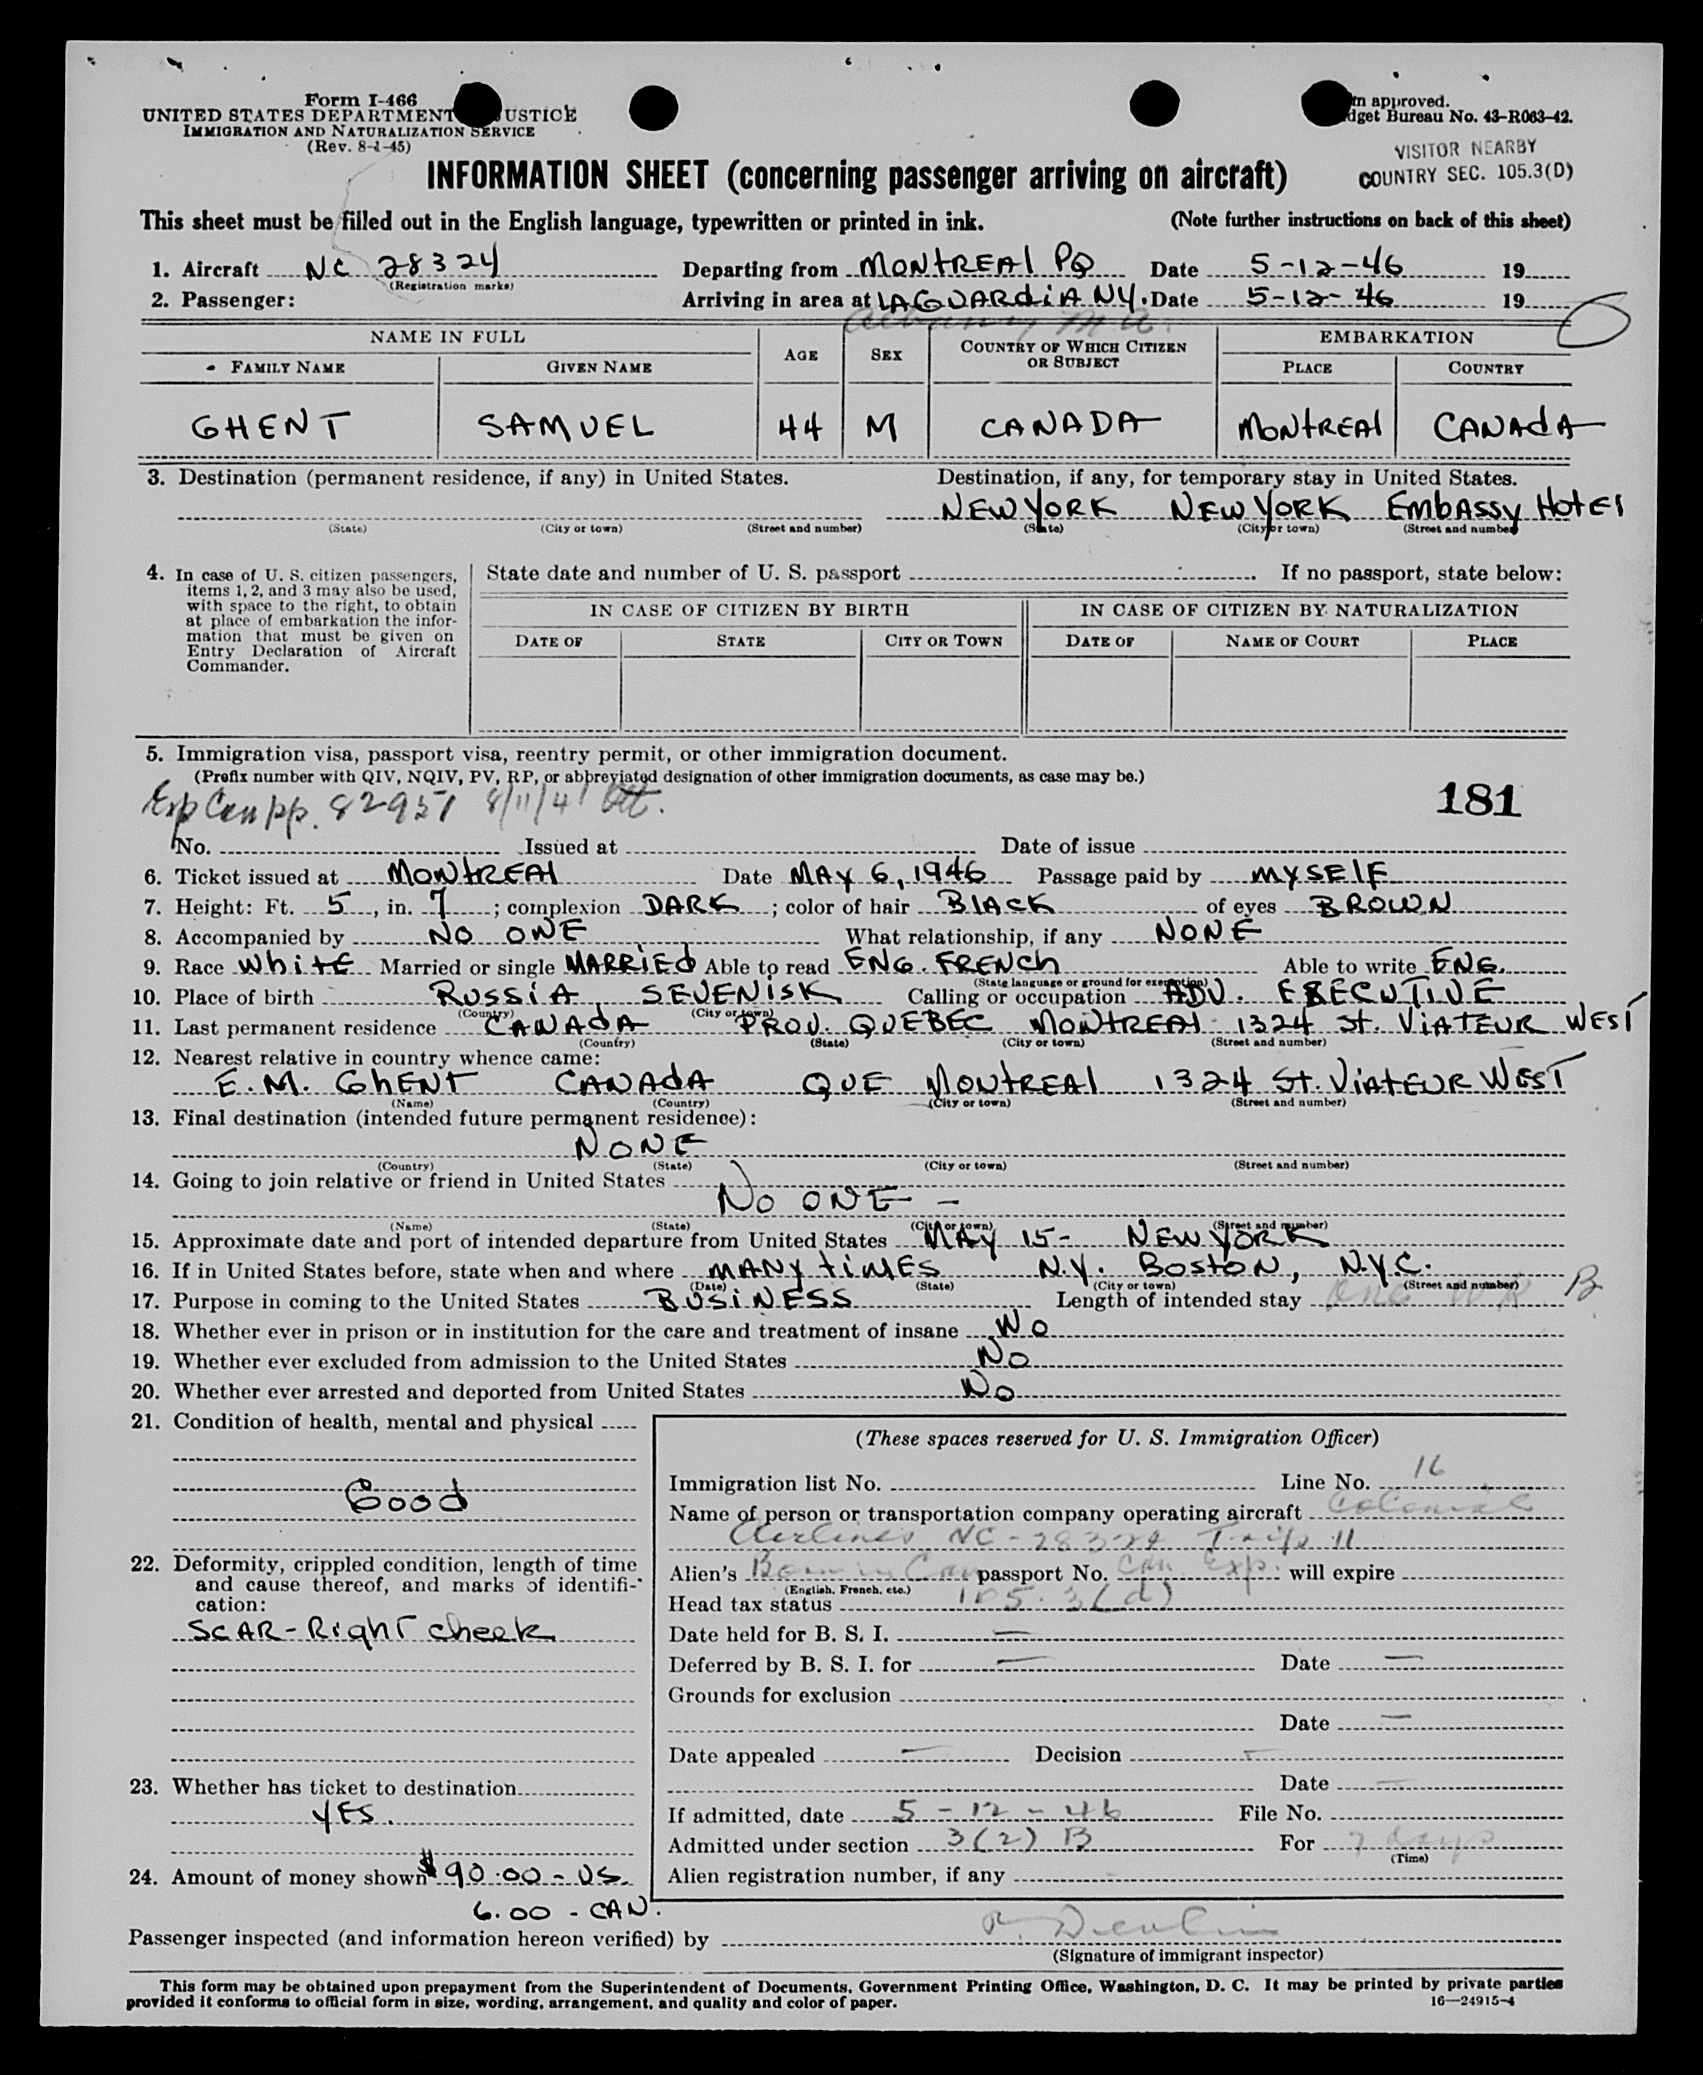 Form I-466
UNITED STATES DEPARTMENT USTICE
IMMIGRATION AND NATURALIZATION SERVICE
(Rev. 8-1-45)
m approved.
dget Bureau No. 43-R063-42.
VISITOR NEARBY
COUNTRY SEC. 105.3(D)
INFORMATION SHEET (concerning passenger arriving on aircraft)
This sheet must be filled out in the English language, typewritten or printed in ink. (Note further instructions on back of this sheet)
1. Aircraft NC 28324 Departing from MONTREAL PQ Date 5-12-46 19
(Registration marks)
2. Passenger: Arriving in area at LAGUARDIA NY. Date 5-12-46 19
Albany
NAME IN FULL AGE SEX COUNTRY OF WHICH CITIZEN OR SUBJECT EMBARKATION
FAMILY NAME GIVEN NAME PLACE COUNTRY
GHENT SAMUEL 44 M CANADA MONTREAL CANADA
3. Destination (permanent residence, if any) in United States. Destination, if any, for temporary stay in United States.
NEW YORK NEW YORK EMBASSY HOTEL
(State) (City or town) (Street and number) (State) (City or town) (Street and number)
4. In case of U. S. citizen passengers, items 1, 2, and 3 may also be used, with space to the right, to obtain at place of embarkation the information that must be given on Entry Declaration of Aircraft Commander.
State date and number of U. S. passport If no passport, state below:
IN CASE OF CITIZEN BY BIRTH IN CASE OF CITIZEN BY NATURALIZATION
DATE OF STATE CITY OR TOWN DATE OF NAME OF COURT PLACE
5. Immigration visa, passport visa, reentry permit, or other immigration document.
(Prefix number with QIV, NQIV, PV, RP, or abbreviated designation of other immigration documents, as case may be.)
Exp Can pp. 82957 8/11/41 Ott.
181
No. Issued at Date of issue
6. Ticket issued at MONTREAL Date MAY 6, 1946 Passage paid by MYSELF
7. Height: Ft. 5, in. 7; complexion DARK; color of hair BLACK of eyes BROWN
8. Accompanied by NO ONE What relationship, if any NONE
9. Race White Married or single MARRIED Able to read ENG. FRENCH Able to write ENG.
(State language or ground for exemption)
10. Place of birth RUSSIA, SEVENISK Calling or occupation ADV. EXECUTIVE
(Country) (City or town)
11. Last permanent residence CANADA PROV. QUEBEC MONTREAL 1324 ST. VIATEUR WEST
(Country) (State) (City or town) (Street and number)
12. Nearest relative in country whence came:
E. M. GHENT CANADA QUE MONTREAL 1324 ST. VIATEUR WEST
(Name) (Country) (City or town) (Street and number)
13. Final destination (intended future permanent residence):
NONE
(Country) (State) (City or town) (Street and number)
14. Going to join relative or friend in United States
NO ONE -
(Name) (State) (City or town) (Street and number)
15. Approximate date and port of intended departure from United States MAY 15- NEW YORK
16. If in United States before, state when and where MANY TIMES N.Y. BOSTON, N.Y.C.
(Date) (State) (City or town) (Street and number)
17. Purpose in coming to the United States BUSINESS Length of intended stay One wk B
18. Whether ever in prison or in institution for the care and treatment of insane NO
19. Whether ever excluded from admission to the United States NO
20. Whether ever arrested and deported from United States NO
21. Condition of health, mental and physical
Good
22. Deformity, crippled condition, length of time and cause thereof, and marks of identification:
SCAR-Right cheek
23. Whether has ticket to destination
YES.
24. Amount of money shown $90.00 - US.
6.00 - CAN.
(These spaces reserved for U. S. Immigration Officer)
Immigration list No. Line No. 16
Name of person or transportation company operating aircraft Colonial
Airlines NC-28324 Trip 11
Alien's Born in Can passport No. Can Exp. will expire
(English, French, etc.)
Head tax status 105.3(d)
Date held for B. S. I. —
Deferred by B. S. I. for — Date —
Grounds for exclusion
Date —
Date appealed — Decision —
Date —
If admitted, date 5-12-46 File No.
Admitted under section 3(2) B For 7 days
(Time)
Alien registration number, if any
Passenger inspected (and information hereon verified) by
(Signature of immigrant inspector)
This form may be obtained upon prepayment from the Superintendent of Documents, Government Printing Office, Washington, D. C. It may be printed by private parties
provided it conforms to official form in size, wording, arrangement, and quality and color of paper.
16—24915-4